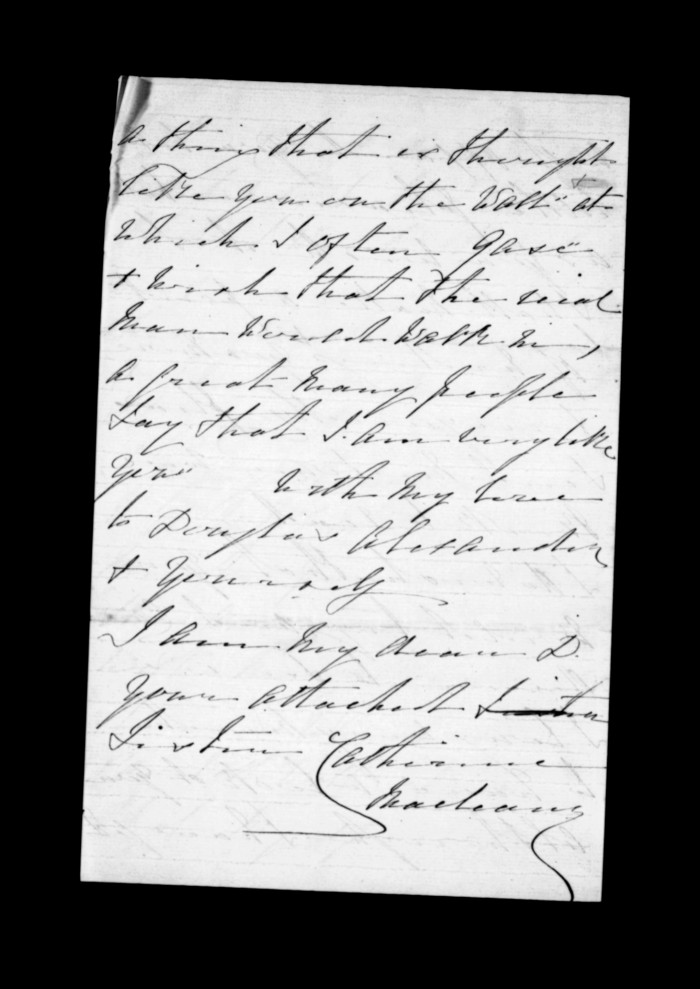 a thing that is thought
like you on the Wall" at
which I often gase"
& wish that the real
Man Would Walk in,
a great Many people
Say that I am very like
you With My love
to Douglas Alexander
& yourself
I am My dear D.
your attached Sister
Sister Catherine
Maclean